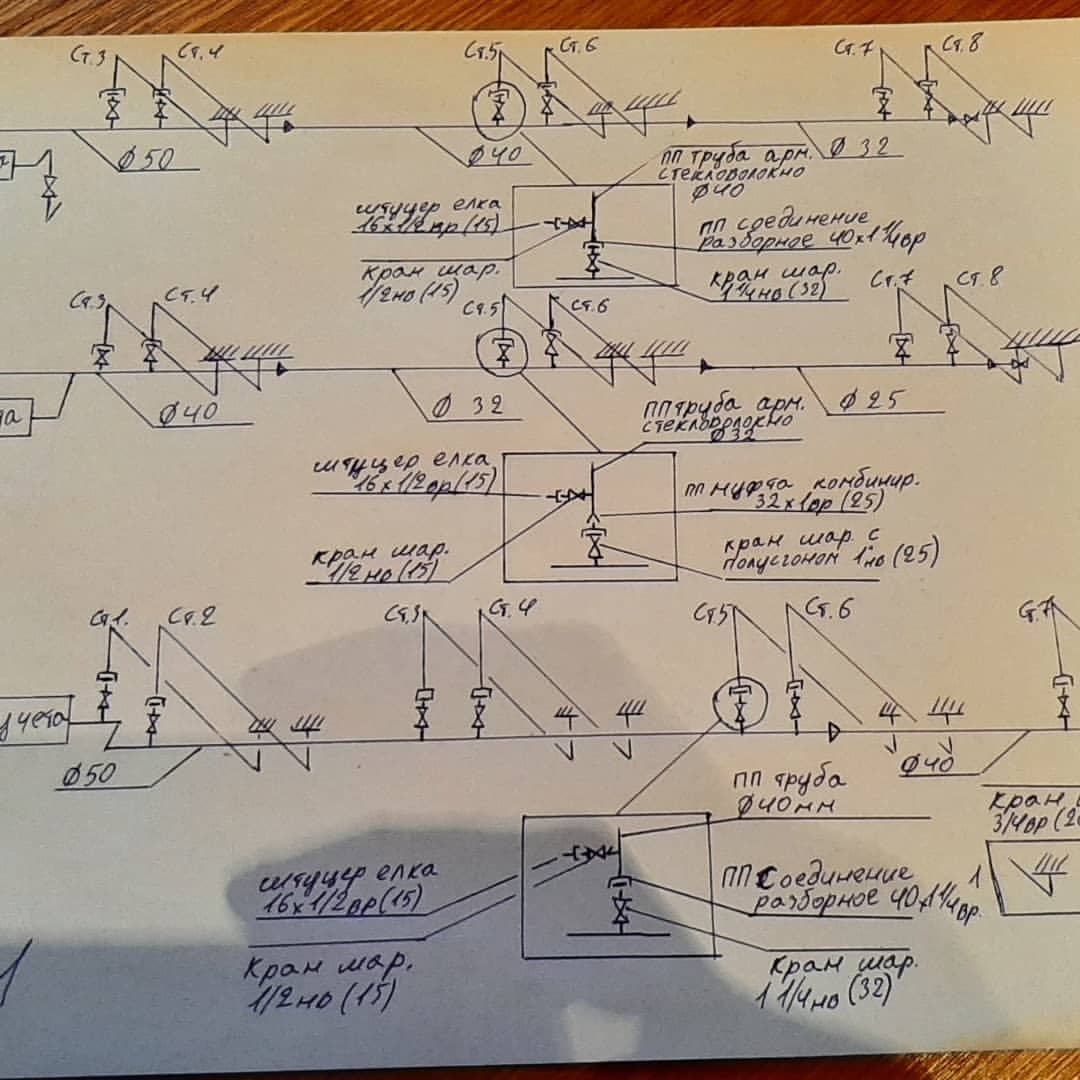 Ст.3
Ст.4
Ст.5
Ст.6
Ст.7
Ст.8
Ø50
Ø40
Ø 32
ПП труба арм.
стекловолокно
Ø40
штуцер елка
16х1/2вр(15)
ПП соединение
разборное 40х1 1/4вр
кран шар.
1/2нв(15)
кран шар.
1 1/4нв(32)
Ст.3
Ст.4
Ст.5
Ст.6
Ст.7
Ст.8
Ø40
Ø 32
Ø 25
ПП труба арм.
стекловолокно
Ø32
штуцер елка
16х1/2вр(15)
ПП муфта комбинир.
32х1вр(25)
кран шар.
1/2нв(15)
кран шар. с
полусгоном 1"нв(25)
Ст1.
Ст.2
Ст.3
Ст.4
Ст.5
Ст.6
Ст.7
учета
Ø50
Ø40
ПП труба
Ø40мм
кран
3/4вр
штуцер елка
16х1/2вр(15)
ПП соединение
разборное 40х1 1/4вр.
1
кран шар.
1/2нв(15)
кран шар.
1 1/4нв(32)